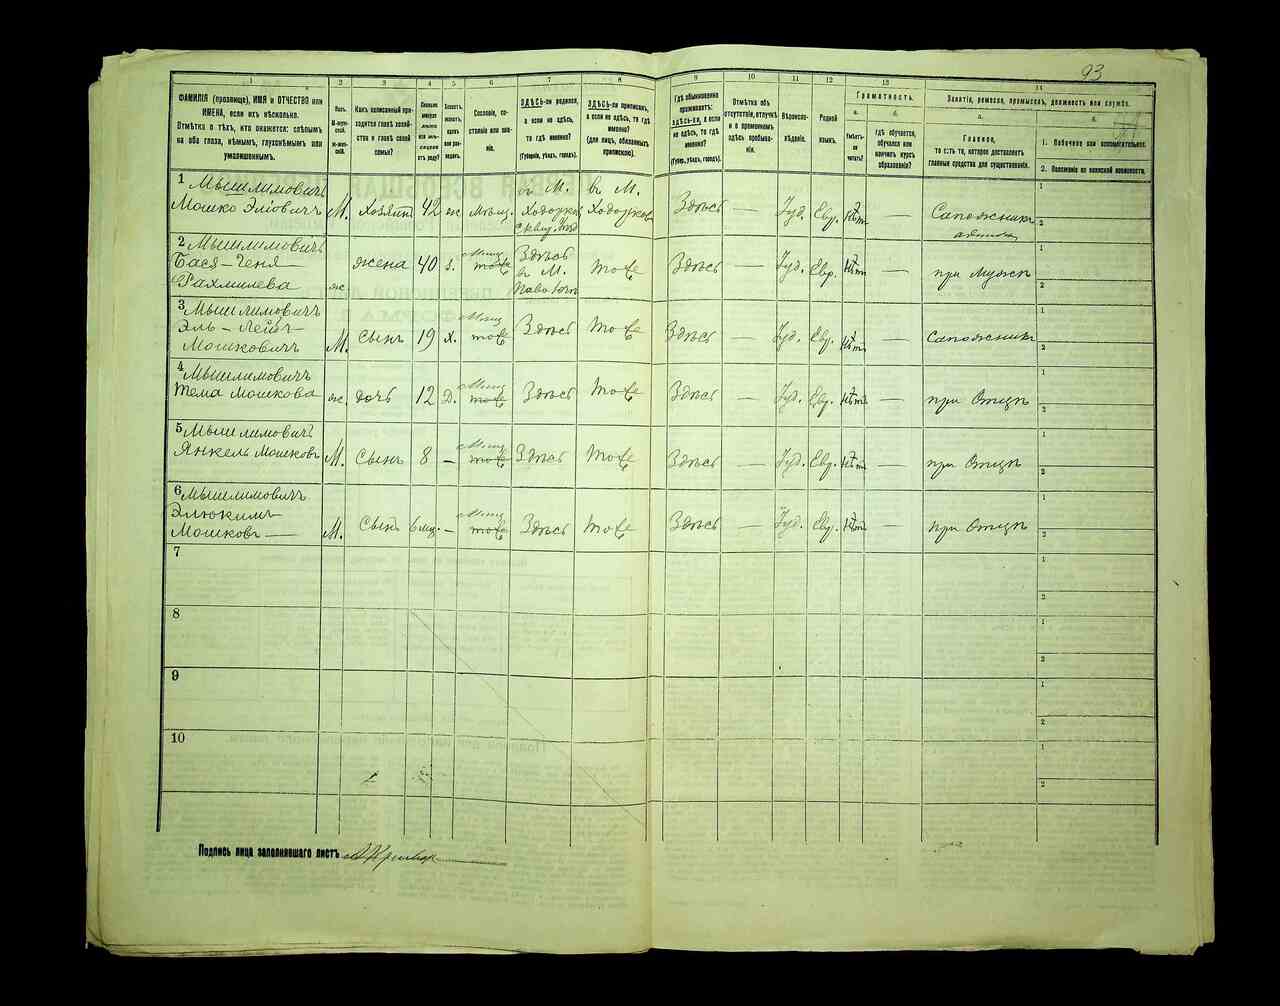 93
1 2 3 4 5 6 7 8 9 10 11 12 13 14
ФАМИЛІЯ (прозвище), ИМЯ и ОТЧЕСТВО или
ИМЕНА, если ихъ нѣсколько.
Отмѣтка о тѣхъ, кто окажется: слѣпымъ
на оба глаза, нѣмымъ, глухонѣмымъ или
умалишеннымъ.
Полъ.
М-муж-
ской.
Ж-жен-
скій.
Какъ записанный при-
ходится главѣ хозяй-
ства и главѣ своей
семьи?
Сословіе, со-
стояніе или зва-
ніе.
ЗДѢСЬ-ли родился,
а если не здѣсь,
то гдѣ именно?
(Губернія, уѣздъ, городъ).
ЗДѢСЬ-ли приписанъ,
а если не здѣсь, то гдѣ
именно?
(для лицъ, обязанныхъ
припискою).
Гдѣ обыкновенно
проживаетъ:
ЗДѢСЬ-ли, а если
не здѣсь, то гдѣ
именно?
(Губер., уѣздъ, городъ).
Отмѣтка объ
отсутствіи, отлучкѣ
и о временномъ
здѣсь пребыва-
ніи.
Вѣроиспо-
вѣданіе.
Родной
языкъ.
Грамотность.
а. б.
Умѣетъ-
ли
читать?
гдѣ обучается,
обучался или
кончилъ курсъ
образованія?
Занятіе, ремесло, промыселъ, должность или служба.
а. б.
Главное,
то есть то, которое доставляетъ
главныя средства для существованія.
1. Побочное или вспомогательное.
2. Положеніе по воинской повинности.
1 Мышлимовичъ
Мошко Эліовичъ М. Хозяинъ 42 ж Мѣщ. въ М. Ходорков въ М. Ходорков Здѣсь — Іуд. Евр. Нѣт — Сапожникъ
2 Мышлимовичъ
Бася-Ченя
Рахмилева ж жена 40 з. Мѣщ тоже Здѣсь въ М. тоже Здѣсь — Іуд. Евр. Нѣт — при Мужѣ
3 Мышлимовичъ
Эль-Лейб-
Мошковичъ М. Сынъ 19 х. Мѣщ тоже Здѣсь тоже Здѣсь — Іуд. Евр. Нѣт — Сапожникъ
4 Мышлимовичъ
Тема Мошкова ж. дочь 12 Д. Мѣщ тоже Здѣсь тоже Здѣсь — Іуд. Евр. Нѣт — при Отцѣ
5 Мышлимовичъ
Янкель Мошковъ М. Сынъ 8 — Мѣщ тоже Здѣсь тоже Здѣсь — Іуд. Евр. Нѣт — при Отцѣ
6 Мышлимовичъ
Элюкимъ
Мошковъ — М. Сынъ 6 мц. — Мѣщ тоже Здѣсь тоже Здѣсь — Іуд. Евр. Нѣт — при Отцѣ
7
8
9
10
Подпись лица заполнявшаго листъ